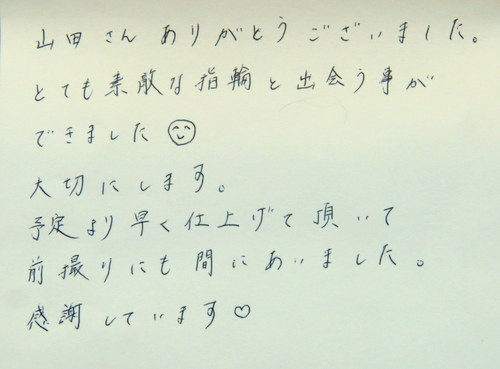 山田さんありがとうございました。
とても素敵な指輪と出会う事が
できました☺
大切にします。
予定より早く仕上げて頂いて
前撮りにも間にあいました。
感謝しています♡